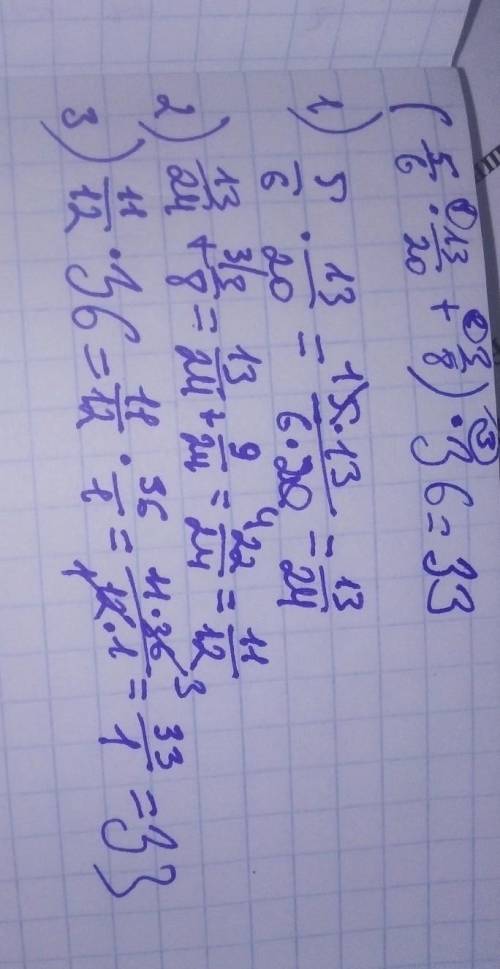 ( 5/6 ①· 13/20 + ② 3/8 ) ·③ 36 = 33
1) 5/6 · 13/20 = 1 5·13 / 6·20 4 = 13/24
2) 13/24 + 3/3/8 = 13/24 + 9/24 = 22/24 = 11/12
3) 11/12 · 36 = 11/12 · 36/1 = 11·36 3 / 1 12·1 = 33/1 = 33